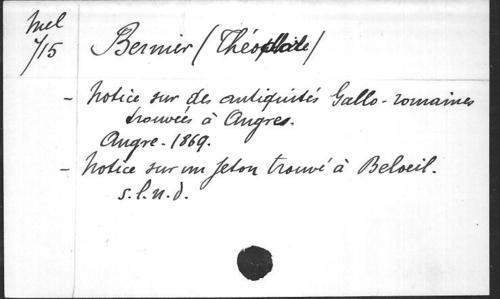 Mel
7/15
Bernier (Théophile)
- Notice sur des antiquités Gallo-romaines
trouvées à Angres.
Angre - 1869.
- Notice sur un jeton trouvé à Beloeil.
s.l.n.d.